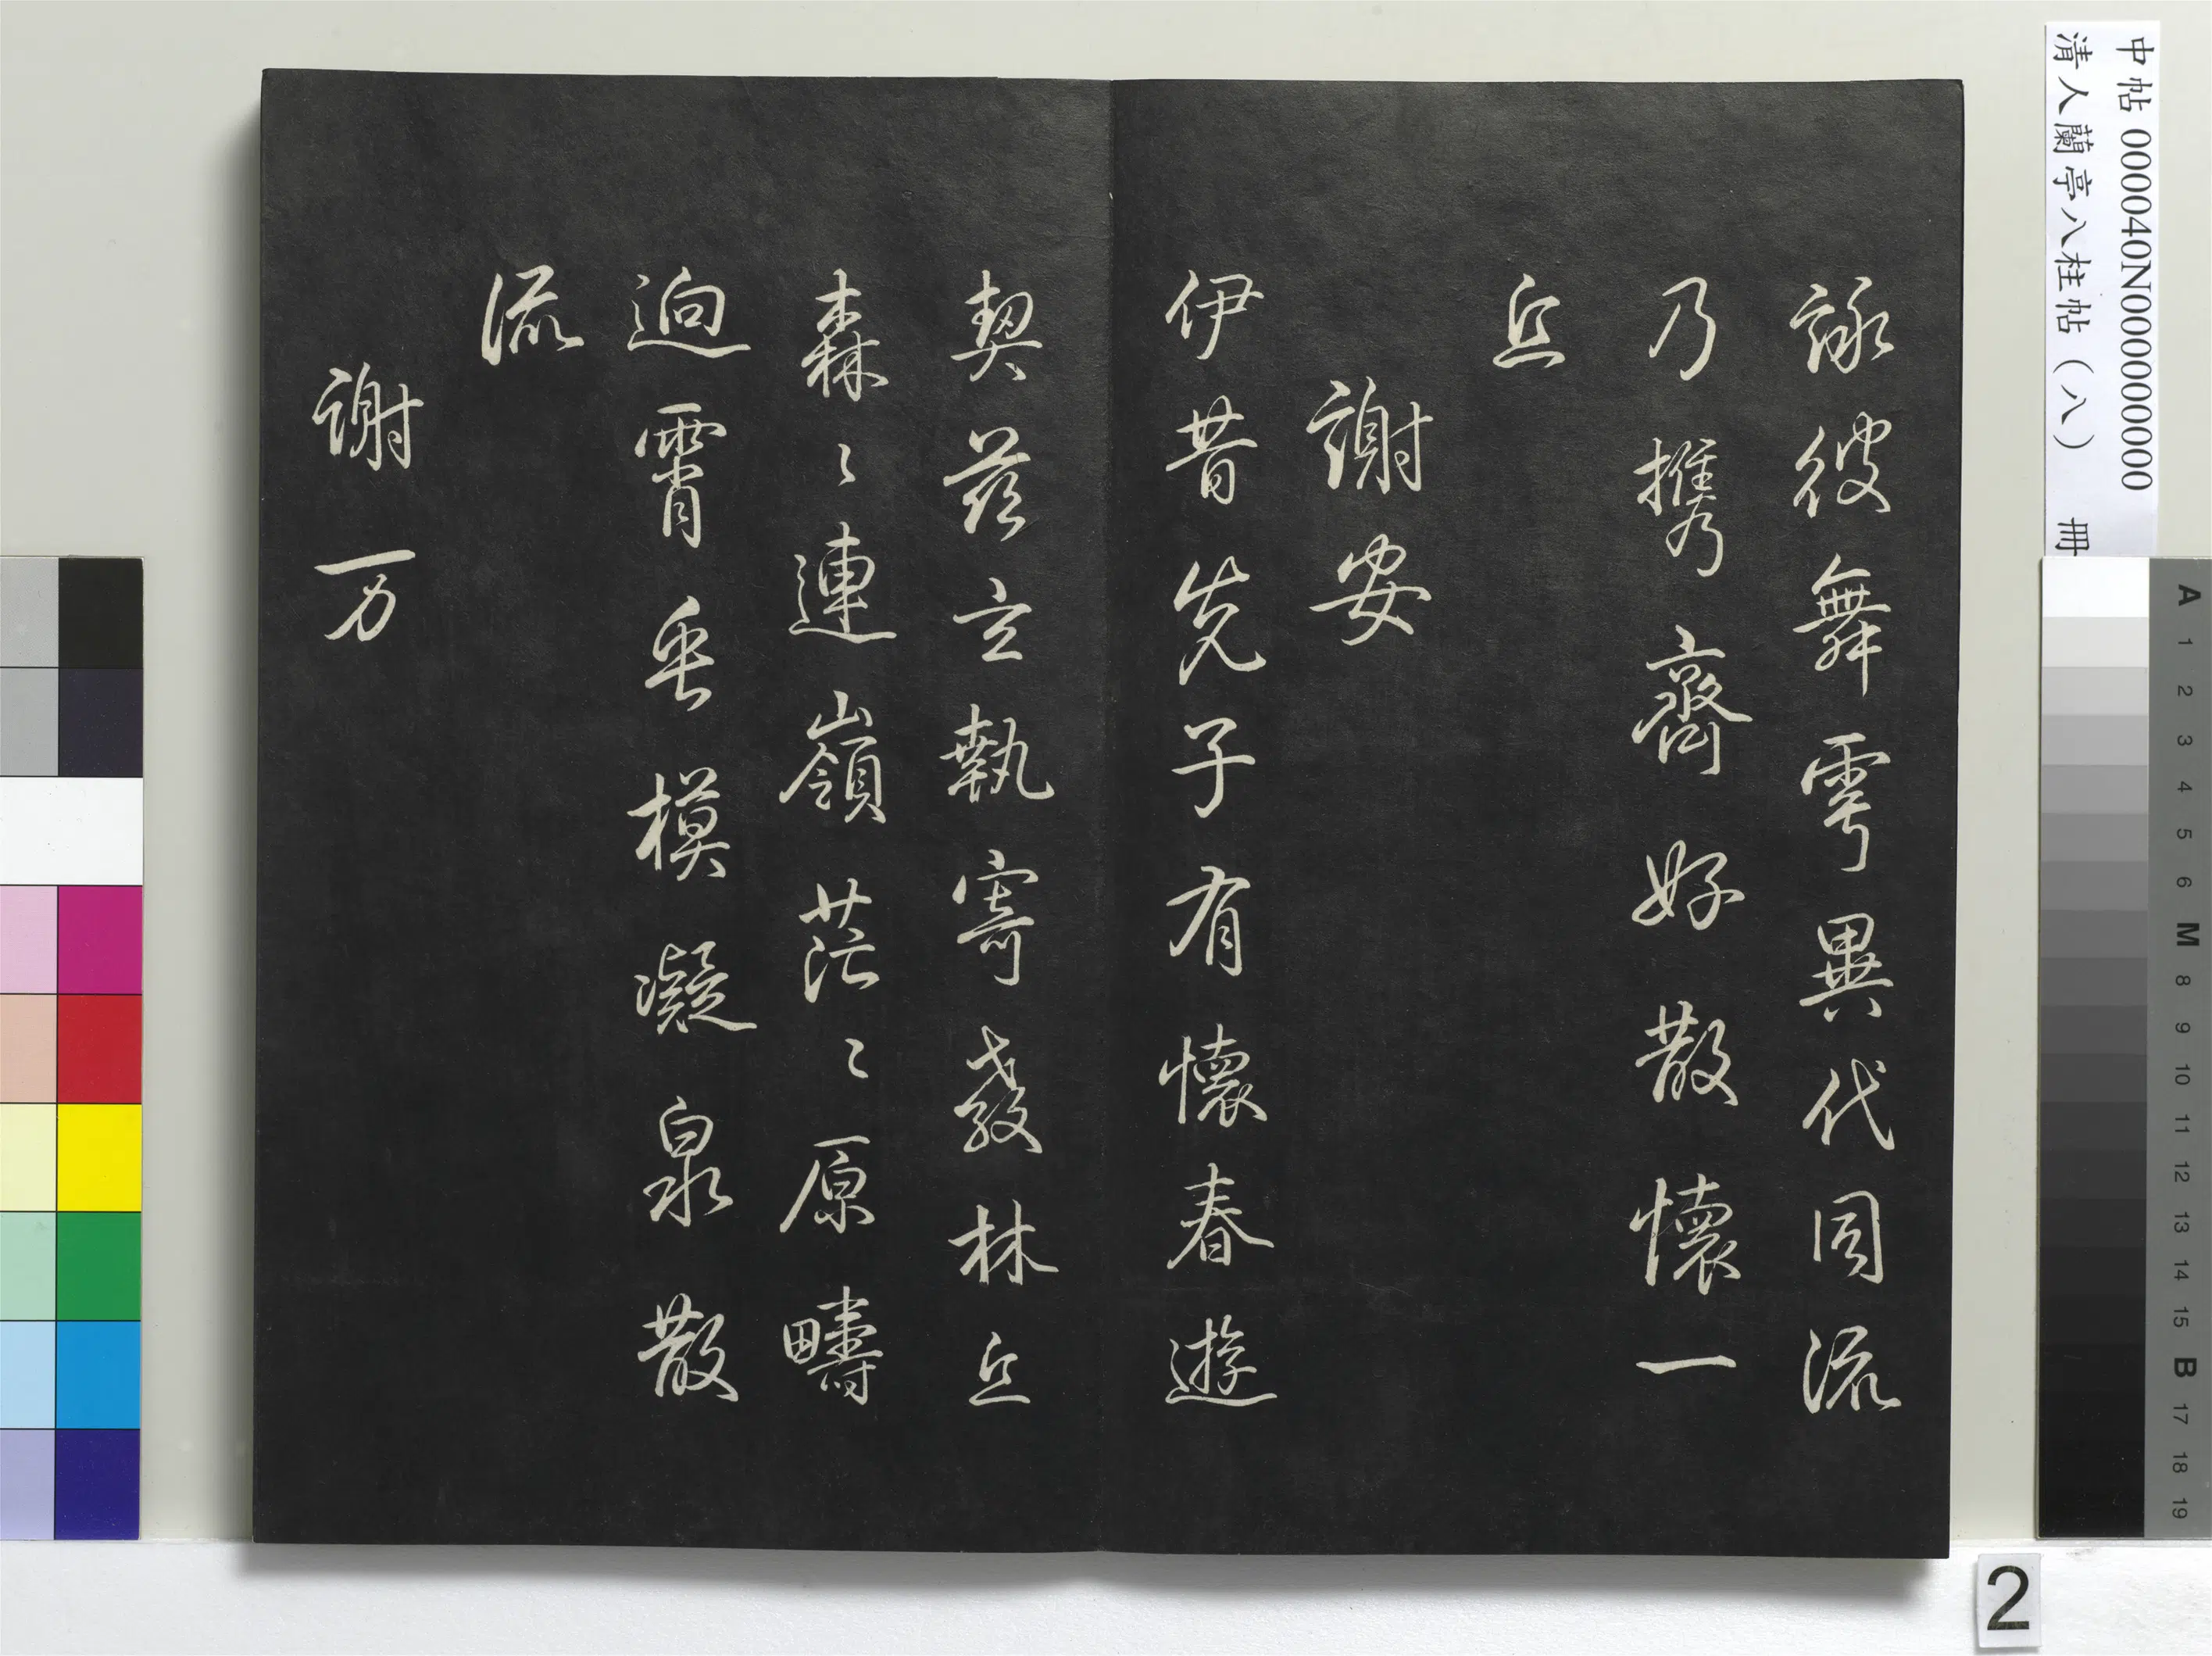 詠彼舞雩異代同流
乃携齊好散懷一
丘
謝安
伊昔先子有懷春遊
契茲言執寄敖林丘
森〻連嶺茫〻原疇
逈霄垂模凝泉散
流
謝万
中帖 000040N000000000
清人蘭亭八柱帖（八） 冊
A 1 2 3 4 5 6 M 8 9 10 11 12 13 14 15 B 17 18 19
2